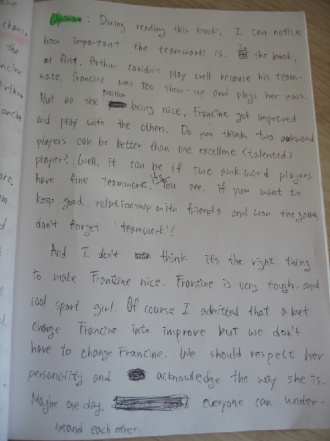 Opinion : During reading this book, I can notice
how important the teamwork is. In the book,
at first, Arthur couldn't play well because his team-
mate, Francine was too show-up and plays her own.
But as she practice being nice, Francine got improved
and play with the others. Do you think two awkward
players can be better than one excellent (talented)
player? Well, it can be if two awkward players
have fine teamwork. You see, if you want to
keep good relationship with friends and won the game,
don't forget 'teamwork'!
And I don't think it's the right thing
to make Francine nice. Francine is very tough and
cool sport girl. Of course I admitted that a bet
change Francine into improve but we don't
have to change Francine. We should respect her
personality and acknowledge the way she is.
Maybe one day, everyone can under-
stand each other.